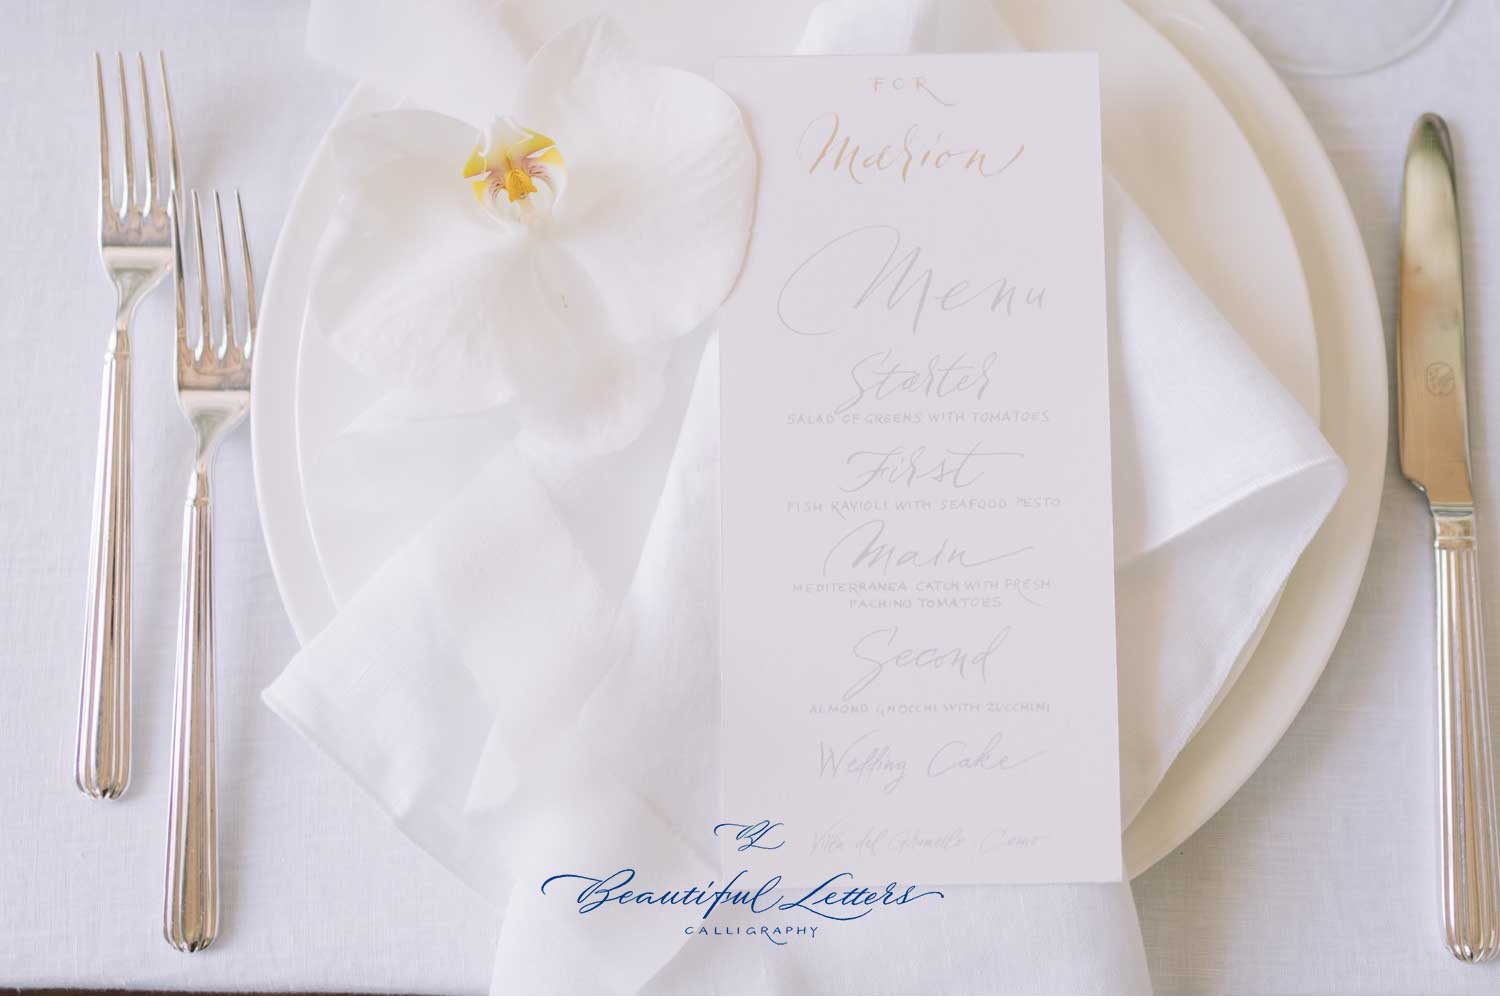 FOR
Marion
Menu
Starter
SALAD OF GREENS WITH TOMATOES
First
FISH RAVIOLI WITH SEAFOOD PESTO
Main
MEDITERRANEA CATCH WITH FRESH
PACHINO TOMATOES
Second
ALMOND GNOCCHI WITH ZUCCHINI
Wedding Cake
Villa del Grumello, Como
BL
Beautiful Letters
CALLIGRAPHY